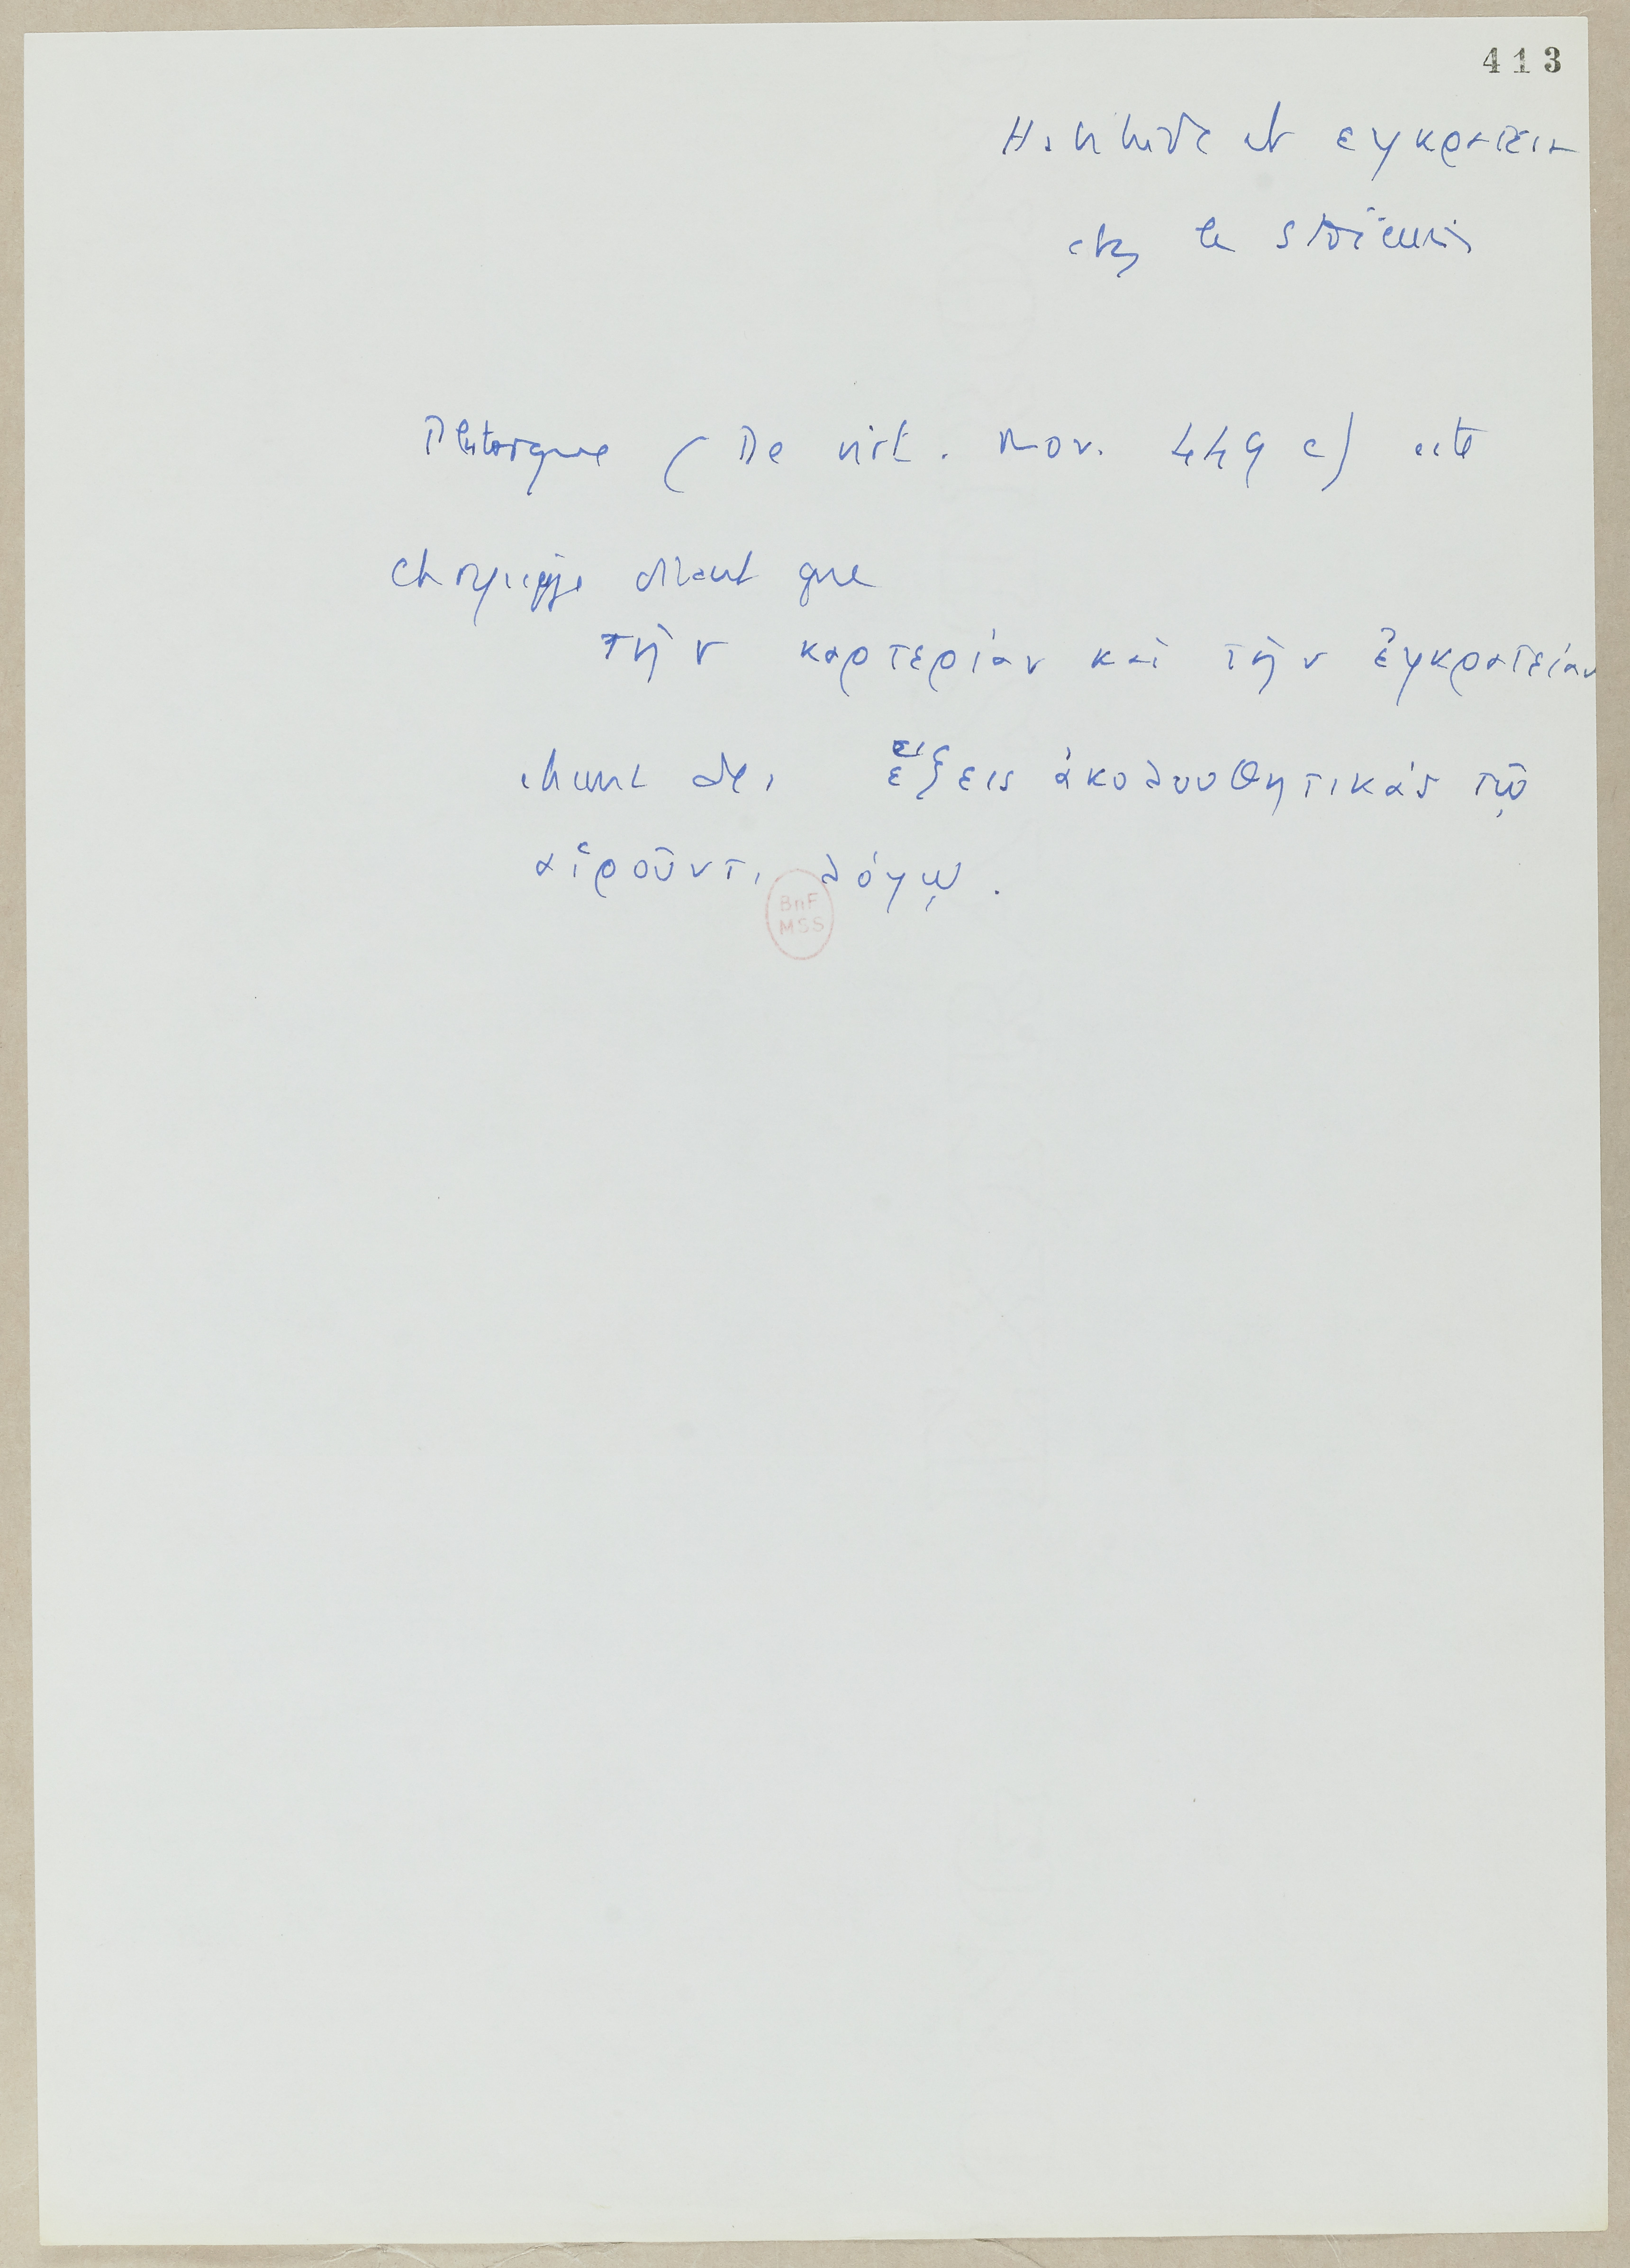 413
et εγκρατεια
chez les stoïciens
Plutarque (De virt. mor. 449 c) cite
Chrysippe disant que
τὴν καρτερίαν καὶ τὴν ἐγκρατείαν
étaient des ἕξεις ἀκολουθητικάς τῷ
αἱροῦντι λόγῳ.
BnF
MSS